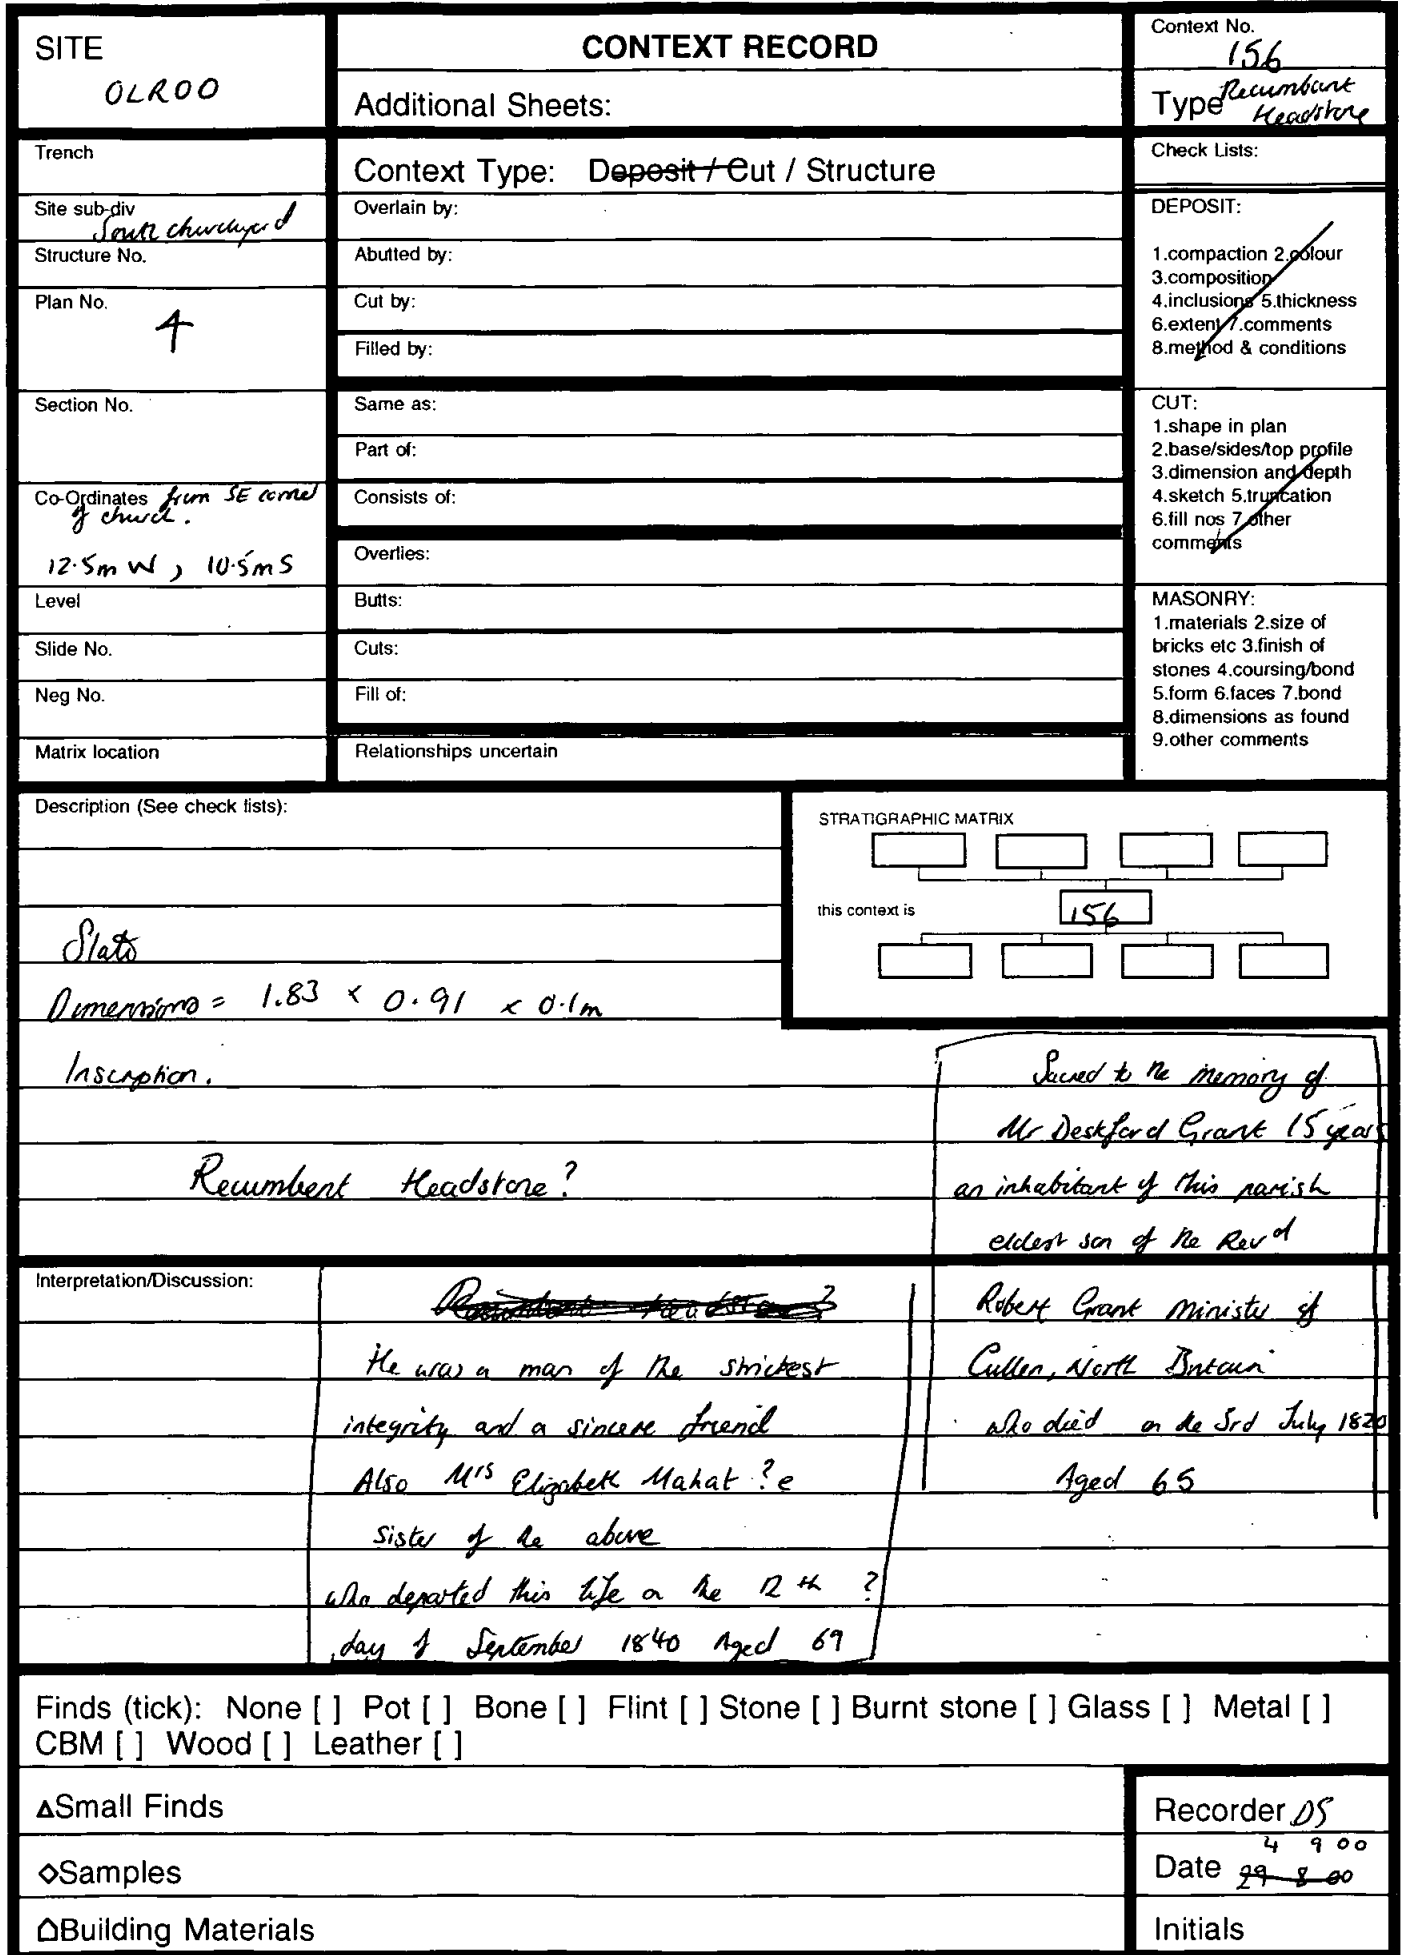 SITE
OLR00
CONTEXT RECORD
Additional Sheets:
Context No.
156
Type Recumbant
Headstone
Trench
Site sub-div
South churchyard
Structure No.
Plan No.
4
Section No.
Co-Ordinates from SE corner
of church.
12.5m W, 10.5m S
Level
Slide No.
Neg No.
Matrix location
Context Type: Deposit / Cut / Structure
Overlain by:
Abutted by:
Cut by:
Filled by:
Same as:
Part of:
Consists of:
Overlies:
Butts:
Cuts:
Fill of:
Relationships uncertain
Check Lists:
DEPOSIT:
1.compaction 2.colour
3.composition
4.inclusions 5.thickness
6.extent 7.comments
8.method & conditions
CUT:
1.shape in plan
2.base/sides/top profile
3.dimension and depth
4.sketch 5.truncation
6.fill nos 7.other
comments
MASONRY:
1.materials 2.size of
bricks etc 3.finish of
stones 4.coursing/bond
5.form 6.faces 7.bond
8.dimensions as found
9.other comments
Description (See check lists):
Slate
Dimensions = 1.83 x 0.91 x 0.1m
Inscription.
Recumbent Headstone?
STRATIGRAPHIC MATRIX
this context is
156
Sacred to the memory of
Mr Deskford Grant 15 years
an inhabitant of this parish
eldest son of the Revd
Robert Grant Minister of
Cullen, North Britain
who died on the 3rd July 1820
Aged 65
Interpretation/Discussion:
Recumbent Headstone?
He was a man of the strickest
integrity and a sincere friend
Also Mrs Elizabeth Mahat?e
sister of the above
who departed this life on the 12th ?
day of September 1840 Aged 69
Finds (tick): None [ ] Pot [ ] Bone [ ] Flint [ ] Stone [ ] Burnt stone [ ] Glass [ ] Metal [ ]
CBM [ ] Wood [ ] Leather [ ]
△Small Finds
◇Samples
⌂Building Materials
Recorder DS
4 9 00
Date 29-8-00
Initials